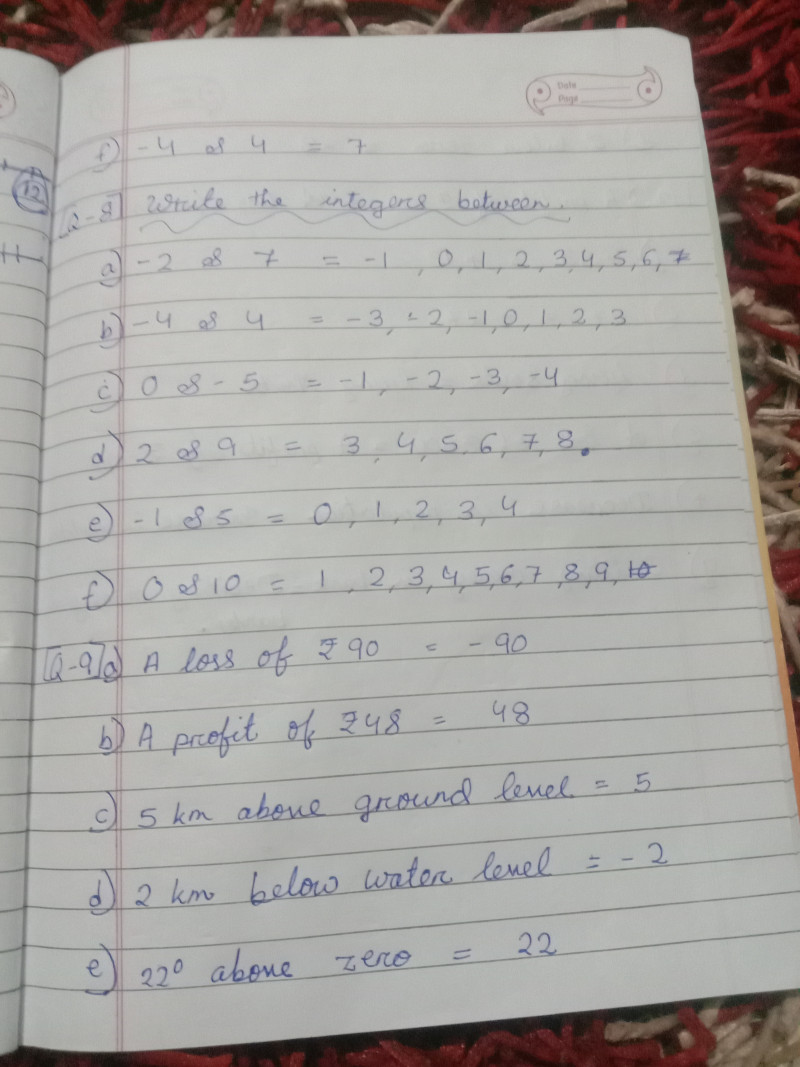 Date
Page
f) -4 & 4 = 7
12
Q-8 Write the integers between.
a) -2 & 7 = -1, 0, 1, 2, 3, 4, 5, 6, 7
b) -4 & 4 = -3, -2, -1, 0, 1, 2, 3
c) 0 & -5 = -1, -2, -3, -4
d) 2 & 9 = 3, 4, 5, 6, 7, 8.
e) -1 & 5 = 0, 1, 2, 3, 4
f) 0 & 10 = 1, 2, 3, 4, 5, 6, 7, 8, 9, 10
Q-9 a) A loss of ₹90 = -90
b) A profit of ₹48 = 48
c) 5 km above ground level = 5
d) 2 km below water level = -2
e) 22° above zero = 22